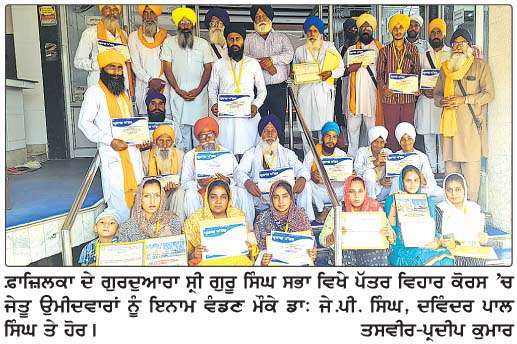 ਫ਼ਾਜ਼ਿਲਕਾ ਦੇ ਗੁਰਦੁਆਰਾ ਸ੍ਰੀ ਗੁਰੂ ਸਿੰਘ ਸਭਾ ਵਿਖੇ ਪੱਤਰ ਵਿਹਾਰ ਕੋਰਸ 'ਚ
ਜੇਤੂ ਉਮੀਦਵਾਰਾਂ ਨੂੰ ਇਨਾਮ ਵੰਡਣ ਮੌਕੇ ਡਾ: ਜੇ.ਪੀ. ਸਿੰਘ, ਦਵਿੰਦਰ ਪਾਲ
ਸਿੰਘ ਤੇ ਹੋਰ। ਤਸਵੀਰ-ਪ੍ਰਦੀਪ ਕੁਮਾਰ